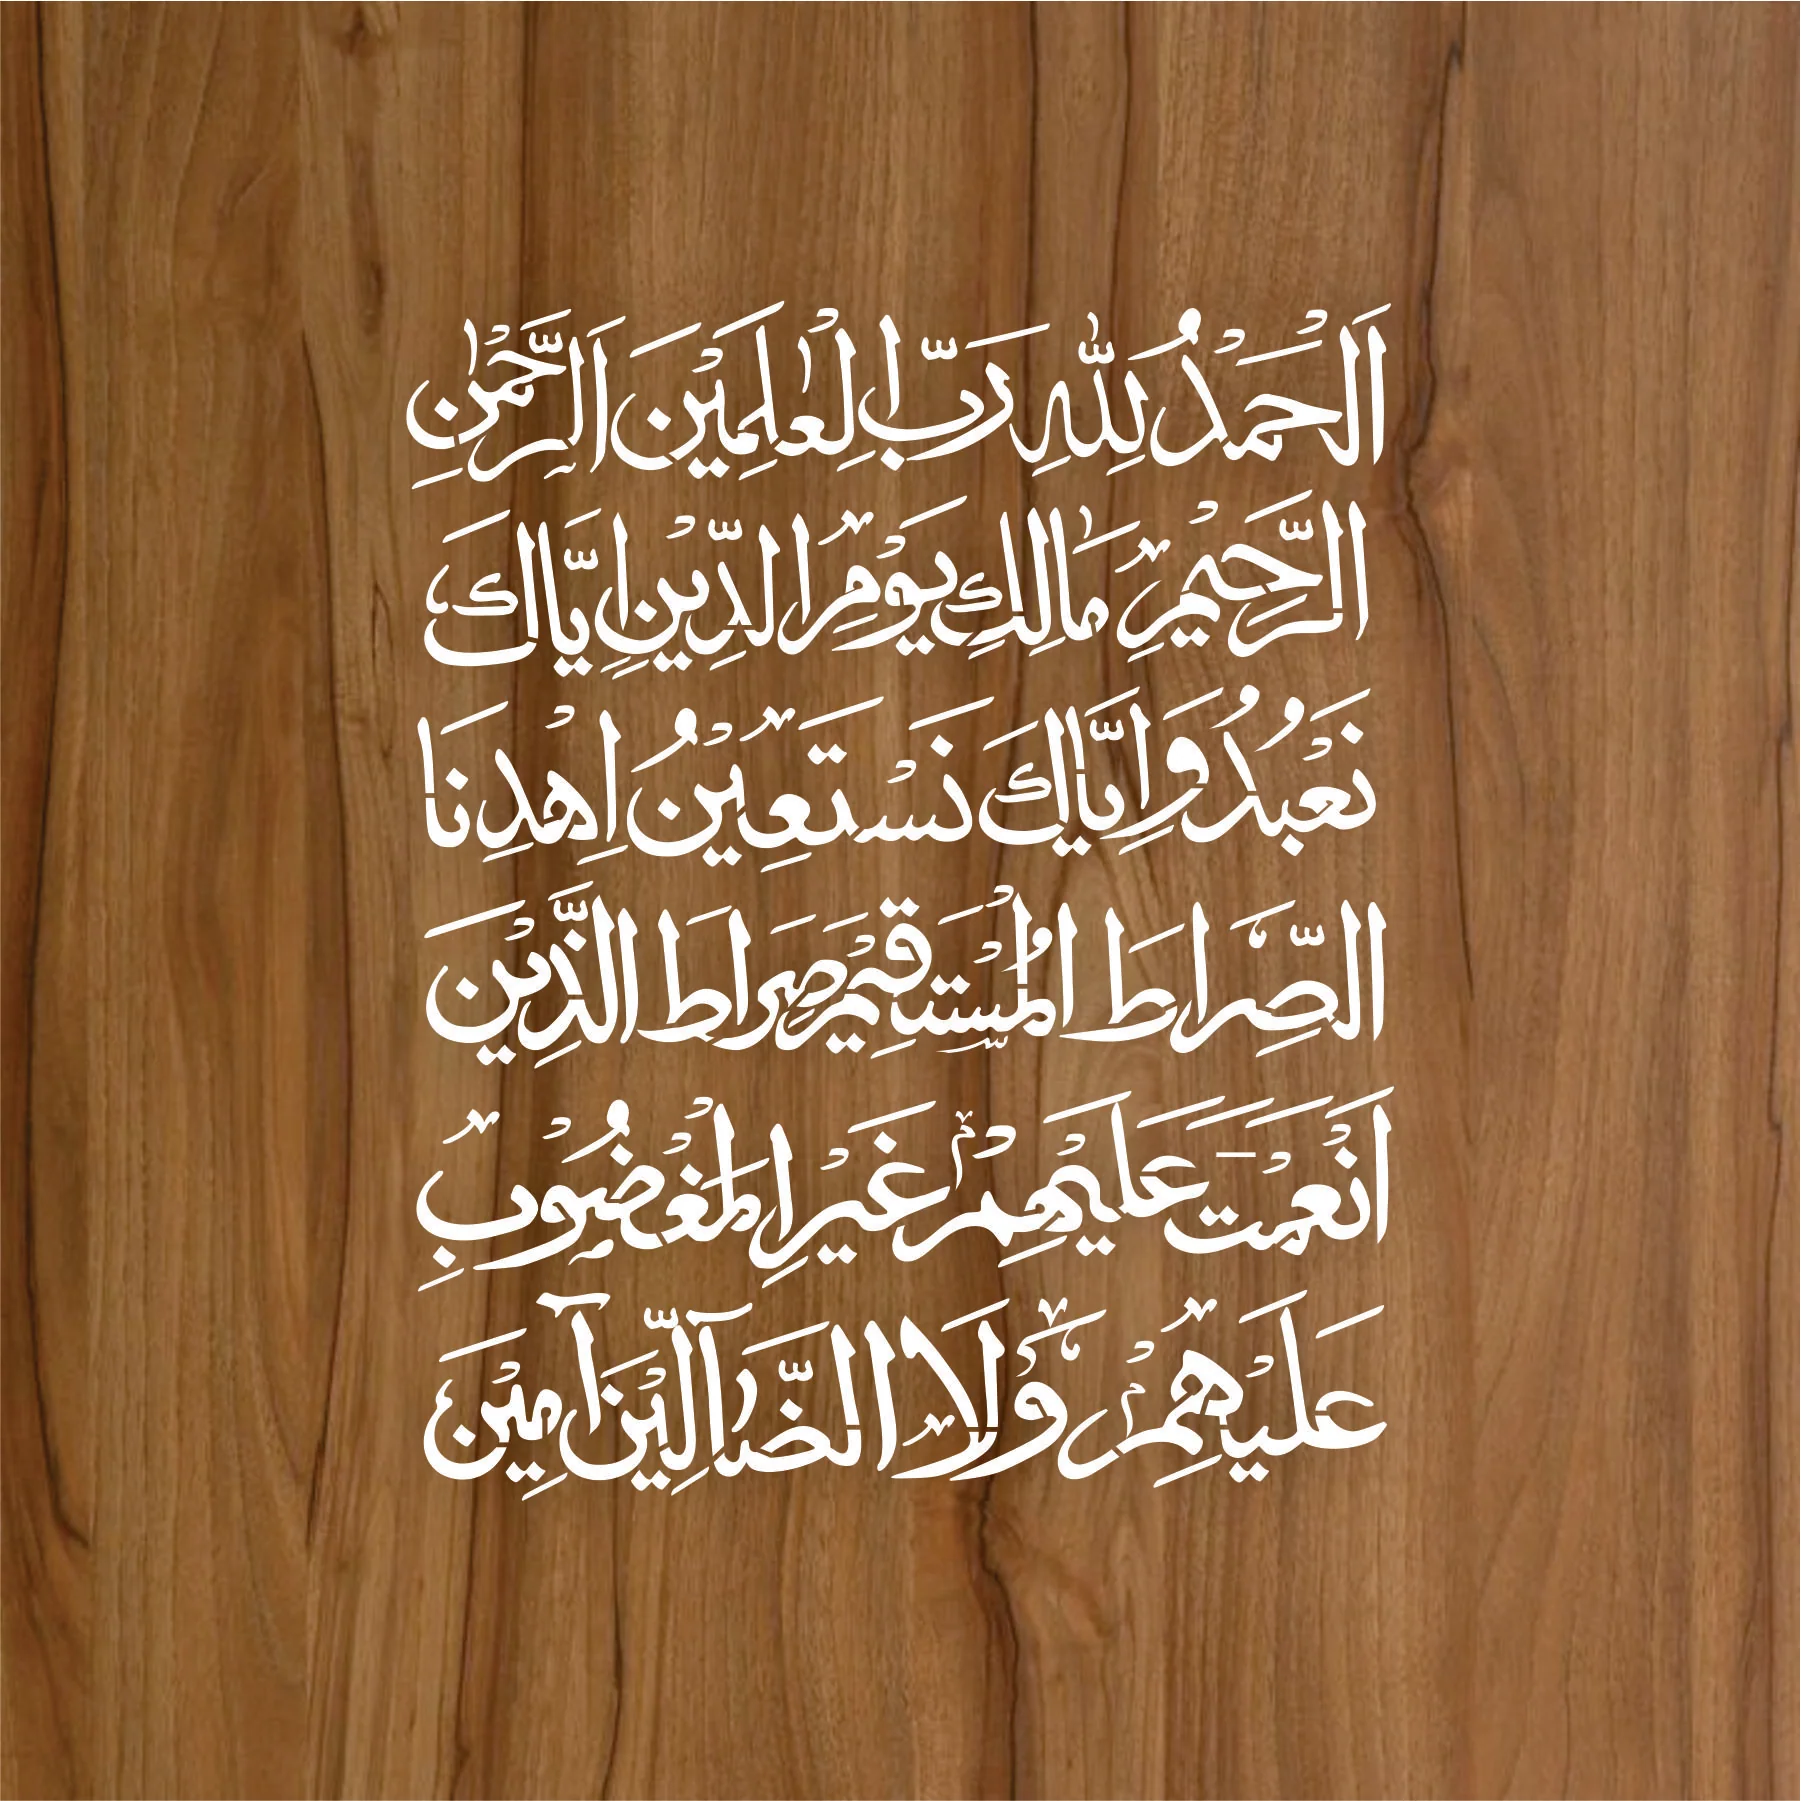 اَلْحَمْدُ لِلّٰهِ رَبِّ الْعٰلَمِیْنَ اَلرَّحْمٰنِ
الرَّحِیْمِ مَالِكِ یَوْمِ الدِّیْنِ اِیَّاكَ
نَعْبُدُ وَاِیَّاكَ نَسْتَعِیْنُ اِهْدِنَا
الصِّرَاطَ الْمُسْتَقِیْمَ صِرَاطَ الَّذِیْنَ
اَنْعَمْتَ عَلَیْهِمْ غَیْرِ الْمَغْضُوْبِ
عَلَیْهِمْ وَلَا الضَّآلِّیْنَ آمِیْنَ